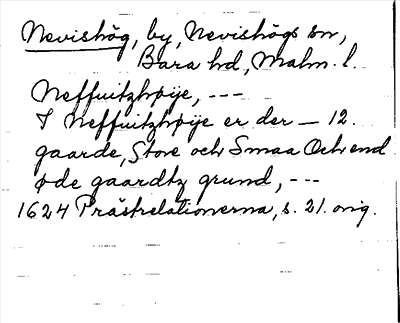 Nevishög, by, Nevishögs sn,
Bara hd, Malm. l.
Neffuitzhøije, ---
I Neffuitzhøije er der — 12.
gaarde, Store och Smaa Och end
øde gaardtz grund, ---
1624 Prästrelationerna, s. 21. orig.